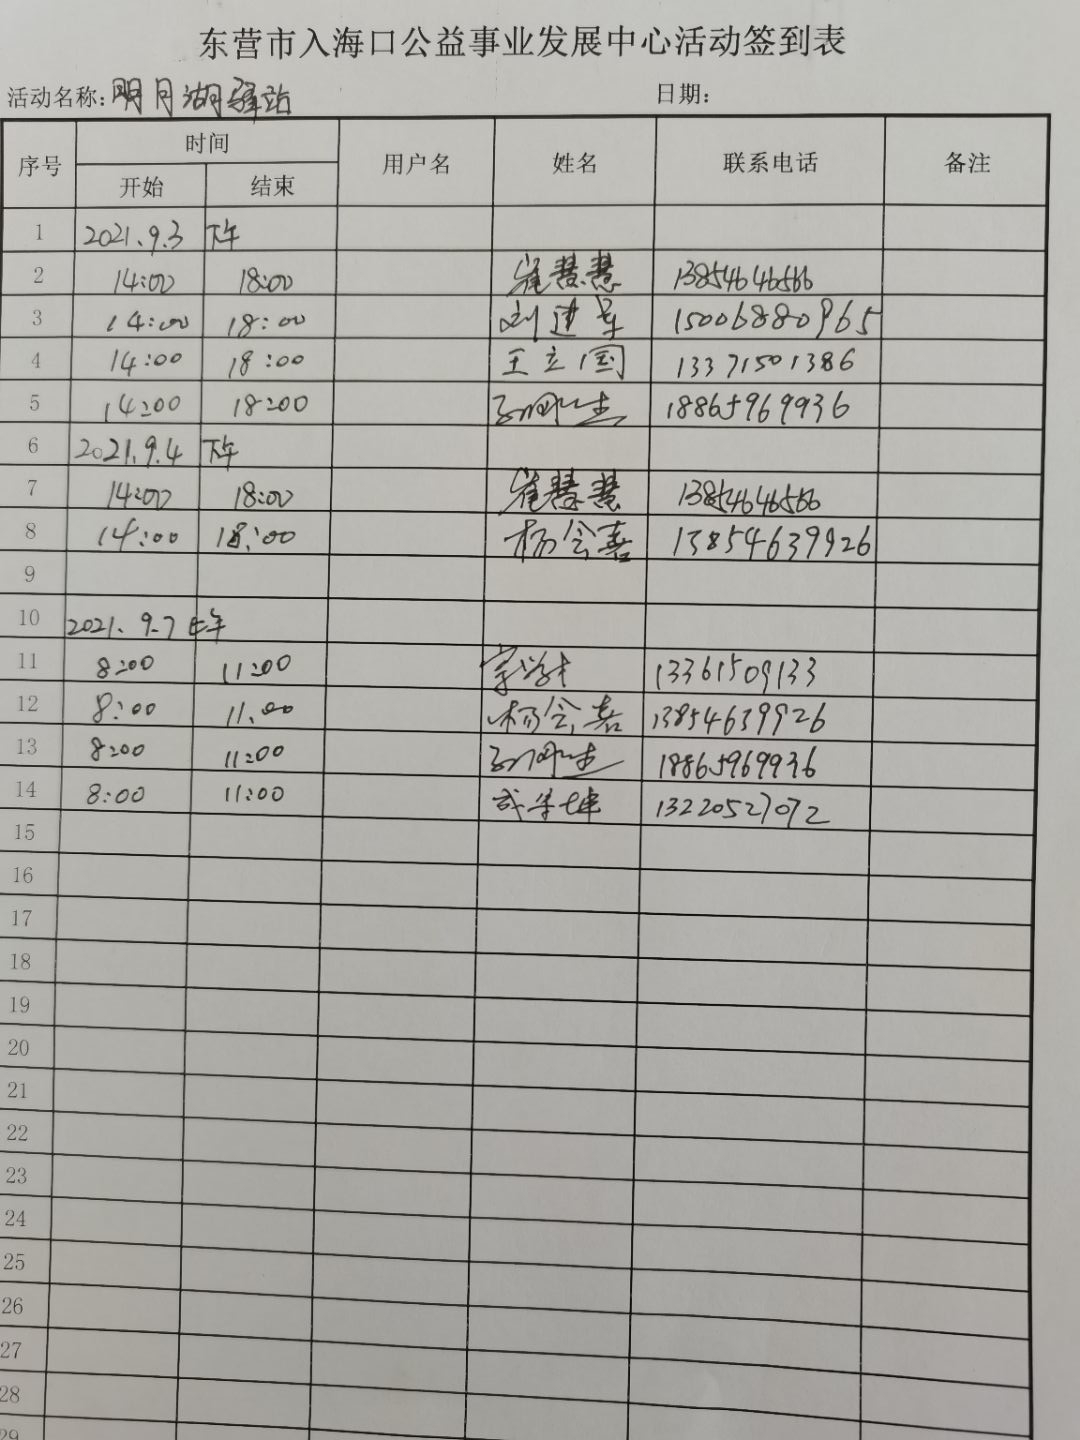 东营市入海口公益事业发展中心活动签到表
活动名称：明月湖驿站 日期：
序号 时间 用户名 姓名 联系电话 备注
开始 结束
1 2021.9.3 下午
2 14:00 18:00 崔慧慧 13854646566
3 14:00 18:00 刘建军 15006880965
4 14:00 18:00 王立国 13371501386
5 14:00 18:00 18865969936
6 2021.9.4 下午
7 14:00 18:00 崔慧慧 13854646566
8 14:00 18:00 杨会喜 13854639926
9
10 2021.9.7 上午
11 8:00 11:00 13361509133
12 8:00 11:00 杨会喜 13854639926
13 8:00 11:00 18865969936
14 8:00 11:00 13220527072
15
16
17
18
19
20
21
22
23
24
25
26
27
28
29